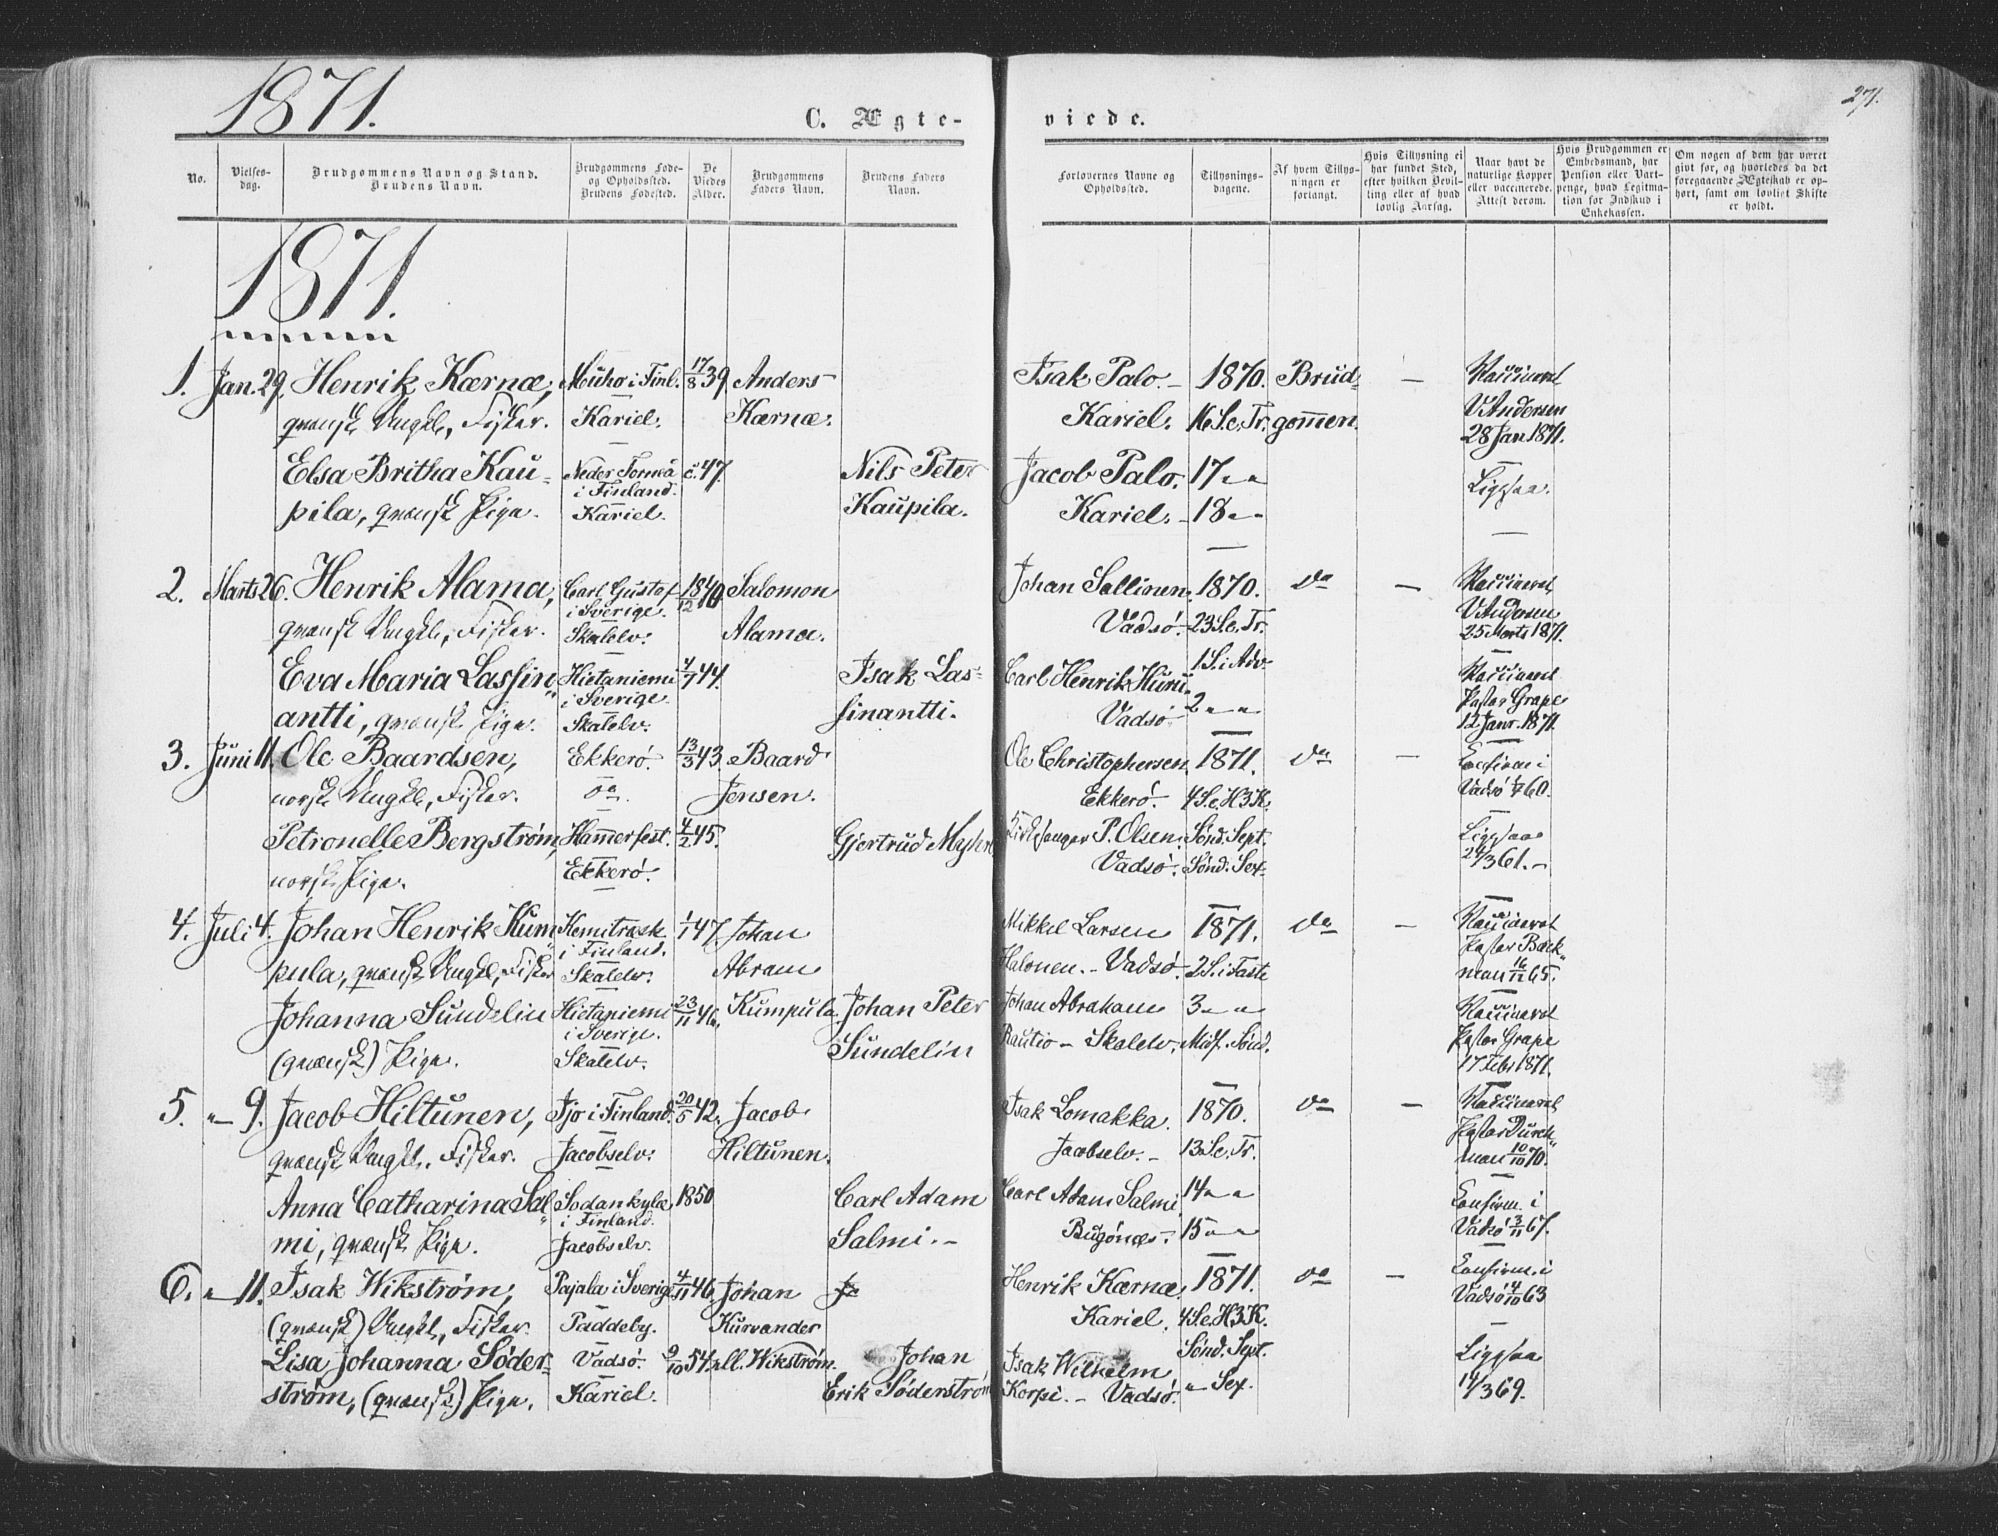 1871.
C. Ægte-
viede.
271.
No.
Vielses-
dag.
Brudgommens Navn og Stand.
Brudens Navn.
Brudgommens Føde-
og Opholdssted.
Brudens Fødested.
De
Viedes
Alder.
Brudgommens
Faders Navn.
Brudens Faders
Navn.
Forlovernes Navne og
Opholdssted.
Tillysnings-
dagene.
Af hvem Tillys-
ningen er
forlangt.
Hvis Tillysning ei
har fundet Sted,
efter hvilken Bevil-
ling eller af hvad
lovlig Aarsag.
Naar havt de
naturlige Kopper
eller vaccinerede.
Attest derom.
Hvis Brudgommen er
Embedsmand, har
Pension eller Vart-
penge, hvad Legitima-
tion for Indskud i
Enkekassen.
Om nogen af dem har været
gift før, og hvorledes da det
foregaaende Ægteskab er op-
hørt, samt om lovligt Skifte
er holdt.
1871.
1. Jan. 29. Henrik Kærnæ,
qvænsk Ungkl, Fisker.
Muhos i Finl.
Kariel.
17/8 39.
Anders
Kærnæ.
Isak Palo. –
Kariel.
1870.
16 S. e. Tr.
Brud-
gommen.
–
Vaccineret
V Andersen
28 Jan 1871.
Elsa Britha Kau-
pila, qvænsk Pige.
Neder Torneå
i Finland.
Kariel.
c. 47.
Nils Peter
Kaupila.
Jacob Palo.
Kariel. –
17 " "
18 " "
Ligesaa.
2. Marts 26. Henrik Alama,
qvænsk Ungkl, Fisker.
Carl Gustaf
i Sverige.
Skalelv.
18/12 40
Salomon
Alama.
Johan Sallinen.
Vadsø.
1870.
23 S. e. Tr.
do
–
Vaccineret
V Andersen
25 Marts 1871.
Eva Maria Lassin-
antti, qvænsk Pige.
Hietaniemi
i Sverige.
Skalelv.
4/7 44.
Isak Las-
sinantti.
Carl Henrik Huru
Vadsø
1 S. i Adv.
2 " "
Vaccineret
Pastor Grape
12 Janr. 1871.
3. Juni 11. Ole Baardsen,
norsk Ungkl, Fisker.
Ekkerø.
do.
13/3 43.
Baard
Jensen.
Ole Christophersen
Ekkerø.
1871.
4 S. e. H 3 K.
do
–
Confirm i
Vadsø 60.
Petronelle Bergstrøm,
norsk Pige.
Hammerfest.
Ekkerø.
4/2 45.
Gjertrud Myhre
Kirkesanger P. Olsen.
Vadsø.
Sønd. Sept.
Sønd. Sex.
Ligesaa
24/3 61. –
4. Juli 4. Johan Henrik Kum-
pula, qvænsk Ungkl, Fisker
Kemitræsk
i Finland.
Skalelv.
1/1 47.
Johan
Abram
Kumpula.
Mikkel Larsen
Halonen. – Vadsø.
1871.
2 S. i Faste
do
–
Vaccineret
Pastor Bäck-
man 16/11 65.
Johanna Sundelin
(qvænsk) Pige.
Hietaniemi
i Sverige.
Skalelv.
23/11 46.
Johan Peter
Sundelin
Johan Abraham
Rautio – Skalelv.
3 " "
Midf. Sønd.
Vaccineret
Pastor Grape
17 Febr 1871.
5. " 9. Jacob Hiltunen,
qvænsk Ungkl. Fisker.
Ijo i Finland.
Jacobselv.
20/5 42.
Jacob
Hiltunen.
Isak Lomakka.
Jacobselv. –
1870.
13 S. e. Tr.
do
–
Vaccineret
Pastor Durch-
man 10/10 70.
Anna Catharina Sal-
mi, qvænsk Pige.
Sodankylæ
i Finland.
Jacobselv.
1850
Carl Adam
Salmi. –
Carl Adam Salmi
Bugønæs. –
14 " "
15 " "
Confirm. i
Vadsø 3/11 67.
6. " 11. Isak Wikstrøm,
(qvænsk) Ungkl, Fisker.
Pajala i Sverige
Paddeby.
4/11 46.
Johan
Kurvander
ell. Wikstrøm.
Henrik Kærnæ.
Kariel.
1871.
4 S. e. H 3 K.
do
–
Confirm. i
Vadsø 4/10 63
Lisa Johanna Søder-
strøm, (qvænsk) Pige.
Vadsø.
Kariel.
9/10 54.
Johan
Erik Søderstrøm
Isak Wilhelm
Korpi. – Vadsø.
Sønd. Sept.
" Sex.
Ligesaa
14/3 69.